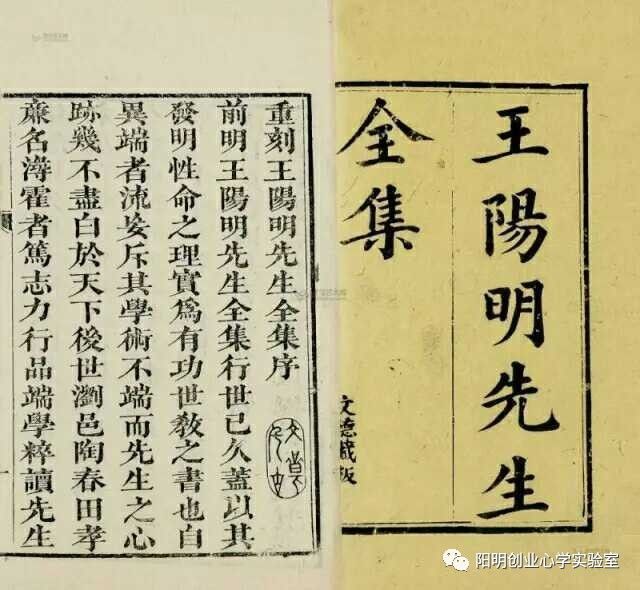 王陽明先生
全集
文德藏板
重刻王陽明先生全集序
前明王陽明先生全集行世已久蓋以其
發明性命之理實爲有功世教之書也自
異端者流妄斥其學術不端而先生之心
跡幾不盡白於天下後世瀏邑陶春田孝
廉名潯霍者篤志力行品端學粹讀先生
阳明创业心学实验室